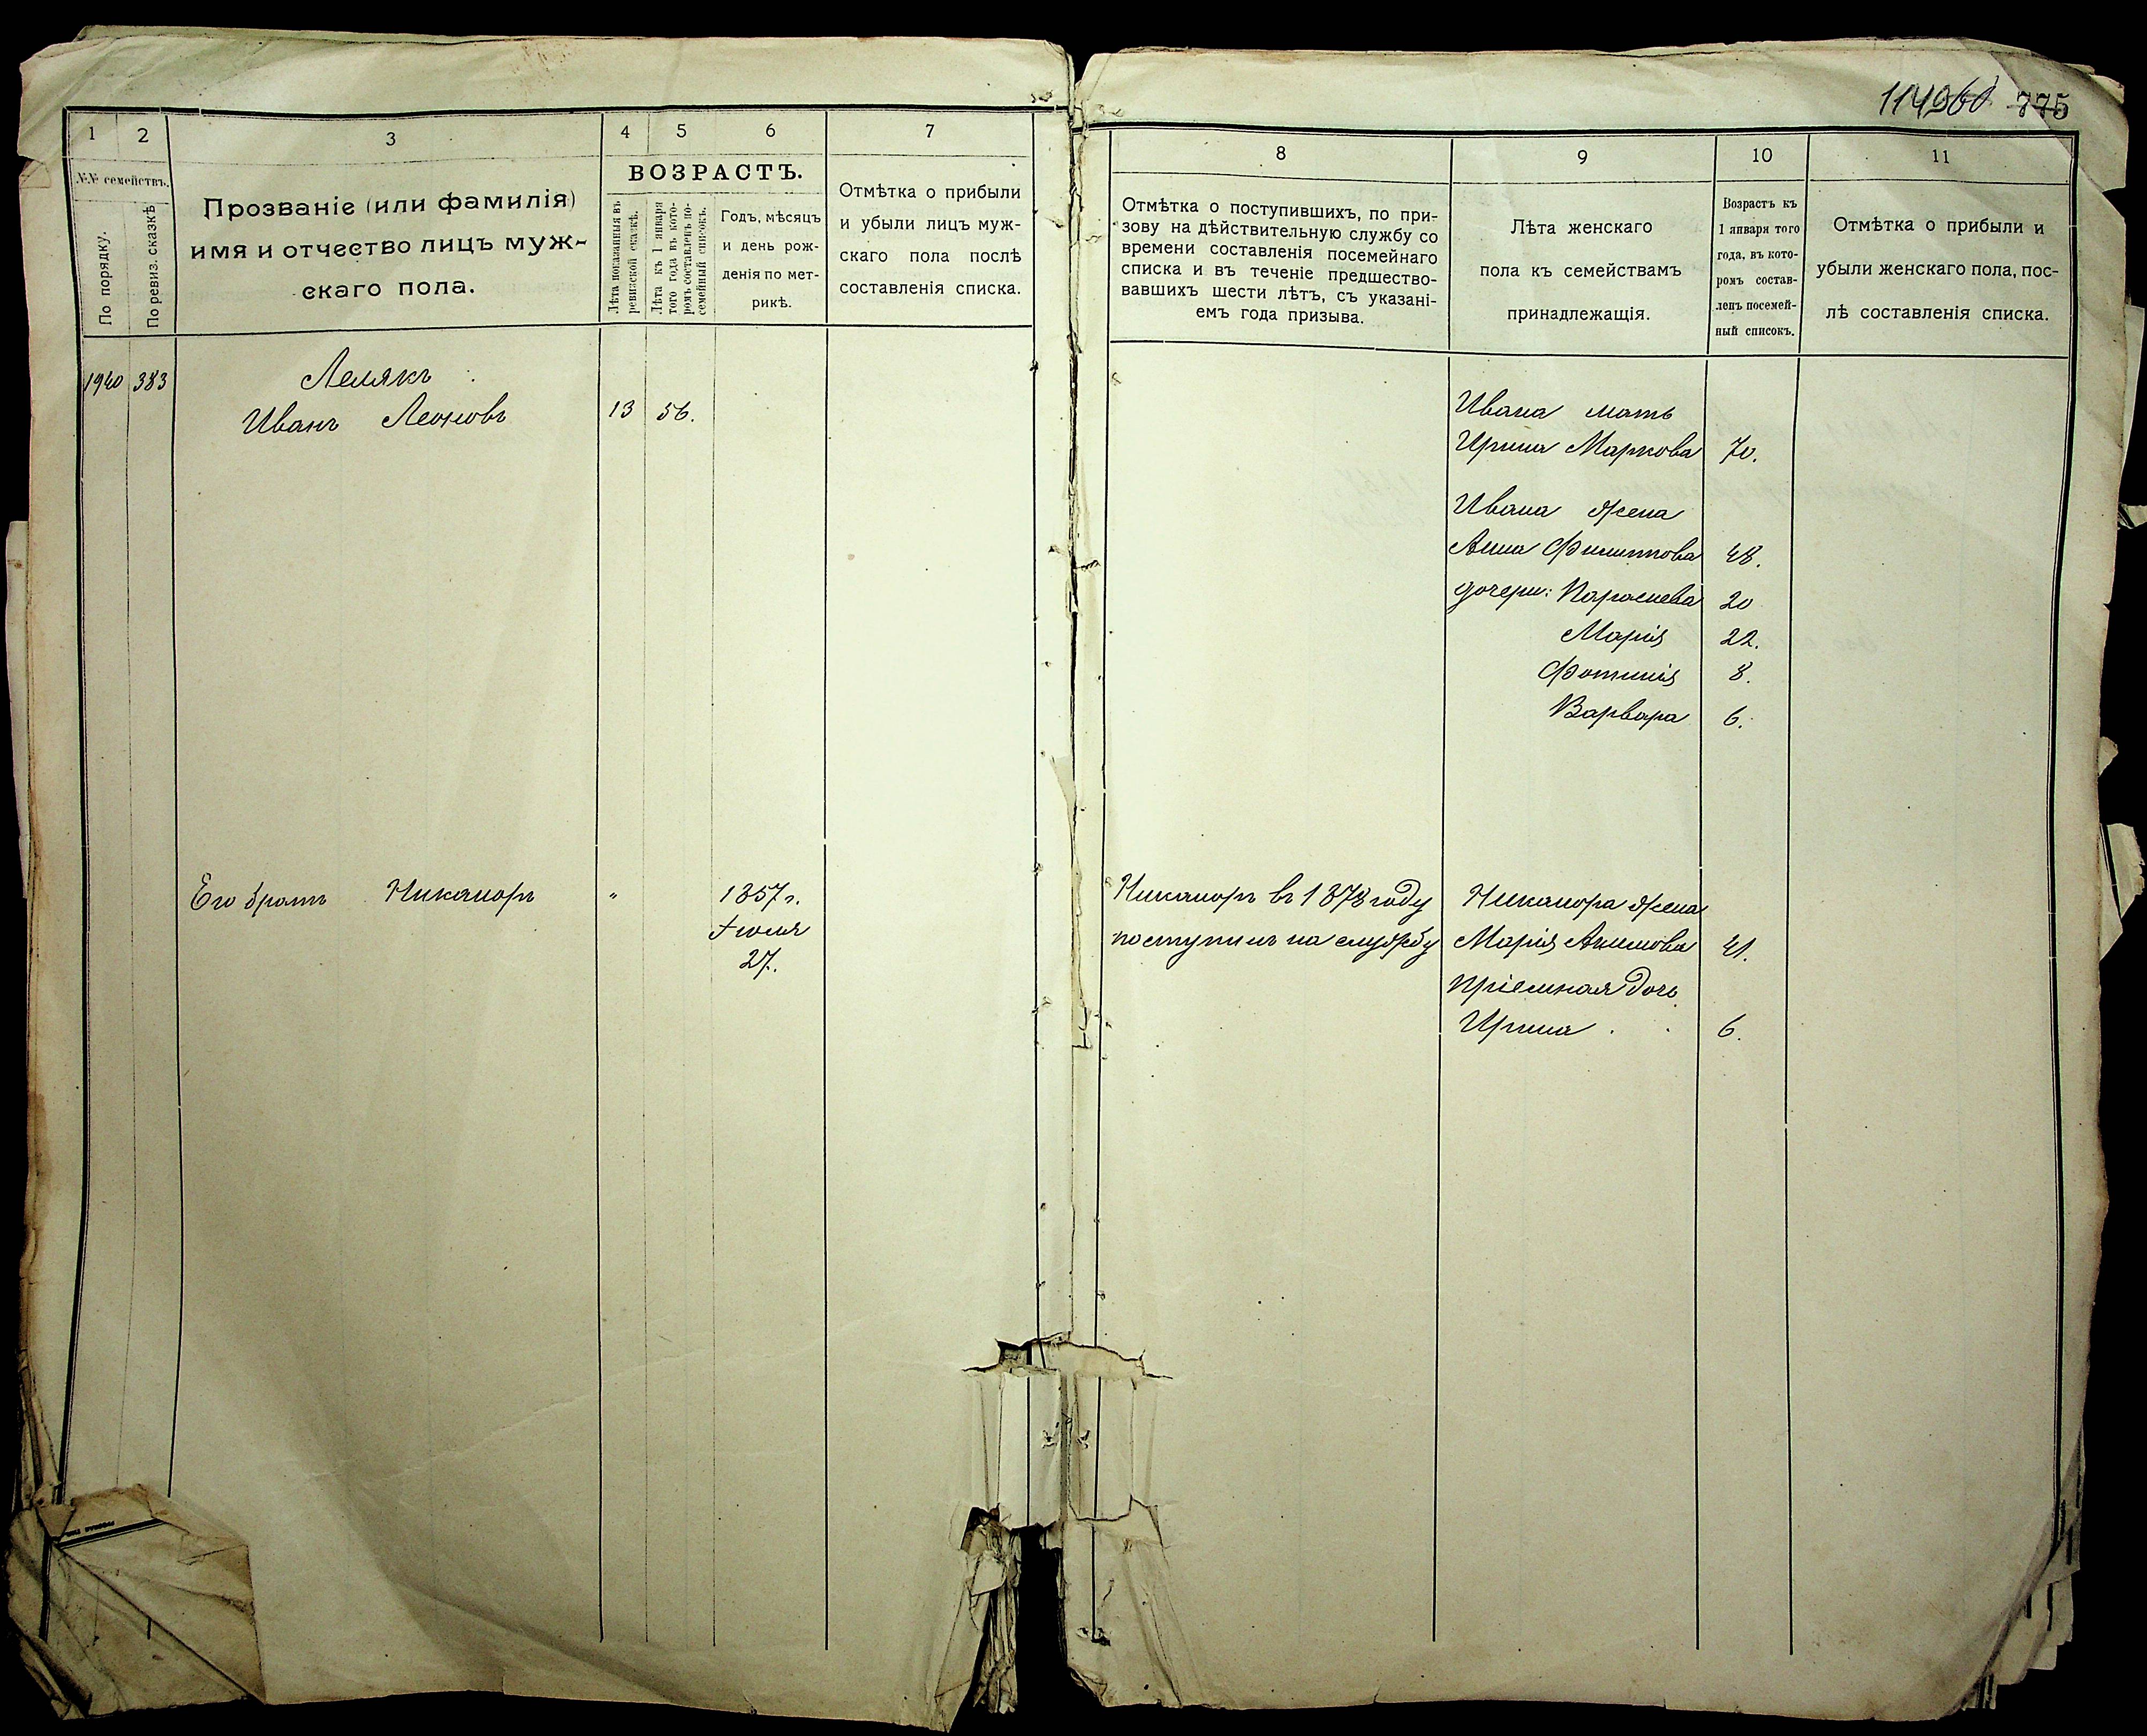 775
1
2
3
4
5
6
7
№№ семействъ.
По порядку.
По ревиз. сказкѣ
Прозваніе (или фамилія)
имя и отчество лицъ муж-
скаго пола.
ВОЗРАСТЪ.
Лѣта показанныя въ
ревизской сказкѣ.
Лѣта къ 1 января
того года въ кото-
ромъ составленъ по-
семейный списокъ.
Годъ, мѣсяцъ
и день рож-
денія по мет-
рикѣ.
Отмѣтка о прибыли
и убыли лицъ муж-
скаго пола послѣ
составленія списка.
1920 383 Лелякъ
Иванъ Леоновъ 13 56.
Его братъ Никаноръ " 1857 г.
Іюля
27.
8
9
10
11
Отмѣтка о поступившихъ, по при-
зову на дѣйствительную службу со
времени составленія посемейнаго
списка и въ теченіе предшество-
вавшихъ шести лѣтъ, съ указані-
емъ года призыва.
Лѣта женскаго
пола къ семействамъ
принадлежащія.
Возрастъ къ
1 января того
года, въ кото-
ромъ состав-
ленъ посемей-
ный списокъ.
Отмѣтка о прибыли и
убыли женскаго пола, пос-
лѣ составленія списка.
Ивана мать
Ирина Маркова 70.
Ивана жена
Анна Филиппова 48.
дочери: Параскева 20
Марія 22.
Фотинія 8.
Варвара 6.
Никаноръ въ 1878 году Никанора жена
поступилъ на службу Марія Акимова 41.
пріемная дочь
Ирина 6.